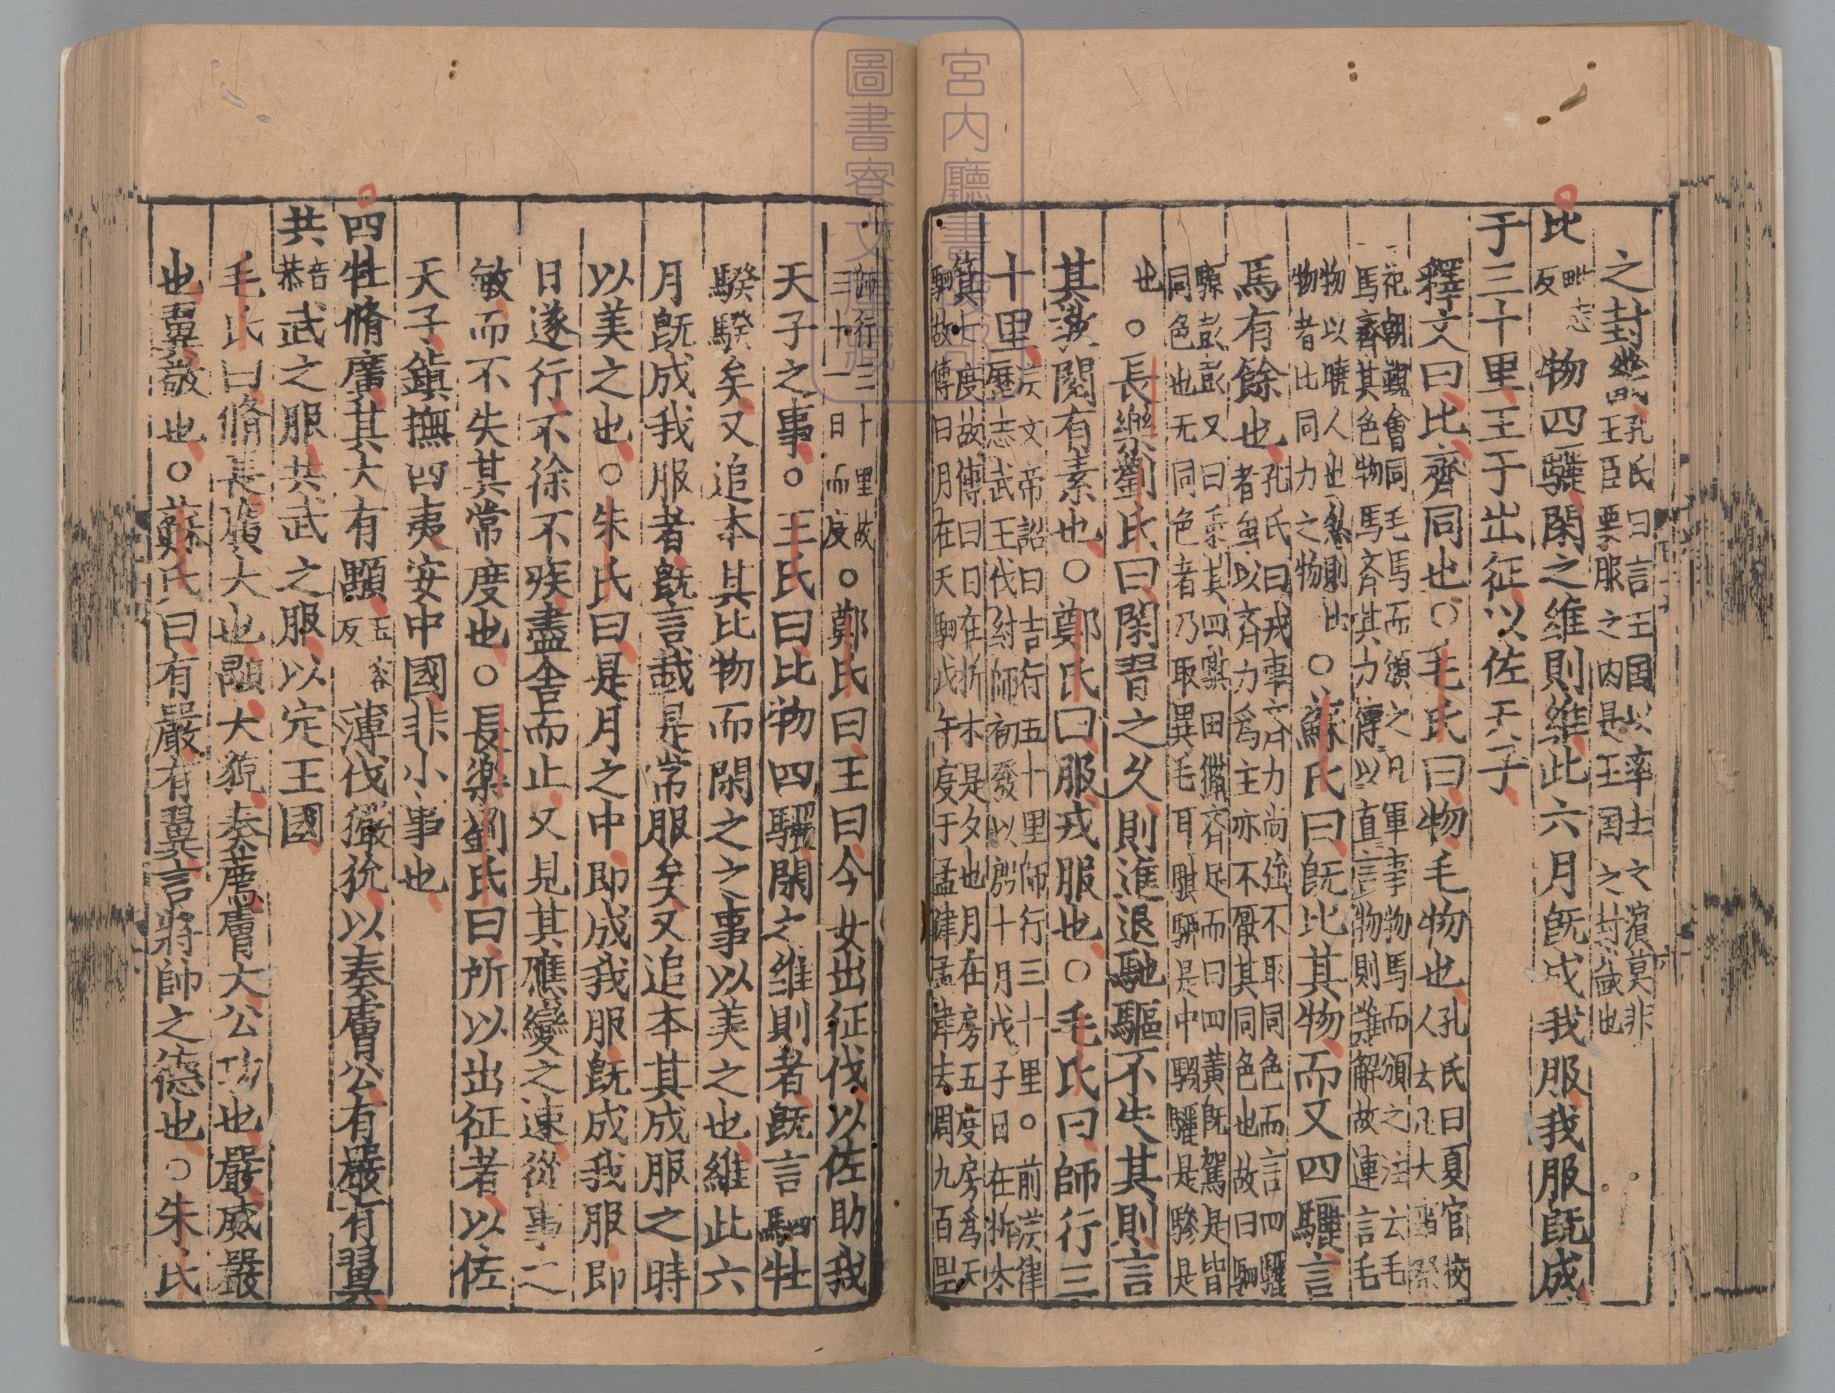 之封畿孔氏曰言王国以率土之濱莫非
王臣要服之内是王国之封畿也
比毗志反物四驪閑之維則維此六月旣成我服我服旣成
于三十里王于出征以佐天子
釋文曰比齊同也○毛氏曰物毛物也孔氏曰夏官校
人云凡大祭
祀朝覲會同毛馬而頒之凡軍事物馬而頒之注云毛
馬齊其色物馬齊其力傳以直言物則難解故連言毛
物以曉人也然則比
物者比同力之物○蘇氏曰旣比其物而又四驪言
馬有餘也孔氏曰戎事齊力尚強不取同色而言四驪
者無以齊力爲主亦不厭其同色也故曰駟
驖彭彭又曰乘其四騏田獵齊足而曰四黄旣駕是皆
同色也无同色者乃取異毛耳騏駵是中騧驪是驂是
也○長樂劉氏曰閑習之久則進退馳驅不失其則言
其敎閱有素也○鄭氏曰服戎服也○毛氏曰師行三
十里漢文帝詔曰吉行五十里師行三十里○前漢律
歷志武王伐紂師初發以殷十月戊子日在析木
箕七度故傳曰日在析木是夕也月在房五度房爲天
駟故傳曰月在天駟戊午度于孟津孟津去周九百里
師行三十里故
三十一日而度○鄭氏曰王曰今女出征伐以佐助我
天子之事○王氏曰比物四驪閑之維則者旣言四牡
騤騤矣又追本其比物而閑之之事以美之也維此六
月旣成我服者旣言載是常服矣又追本其成服之時
以美之也○朱氏曰是月之中即成我服旣成我服即
日遂行不徐不疾盡舍而止又見其應變之速從事之
敏而不失其常度也○長樂劉氏曰所以出征者以佐
天子鎮撫四夷安中國非小事也
四牡脩廣其大有顒玉容反薄伐玁狁以奏膚公有嚴有翼
共音恭武之服共武之服以定王國
毛氏曰脩長廣大也顒大貌奏薦膚大公功也嚴威嚴
也翼敬也○鄭氏曰有嚴有翼言將帥之德也○朱氏
宮内廳書陵部
圖書寮文庫藏